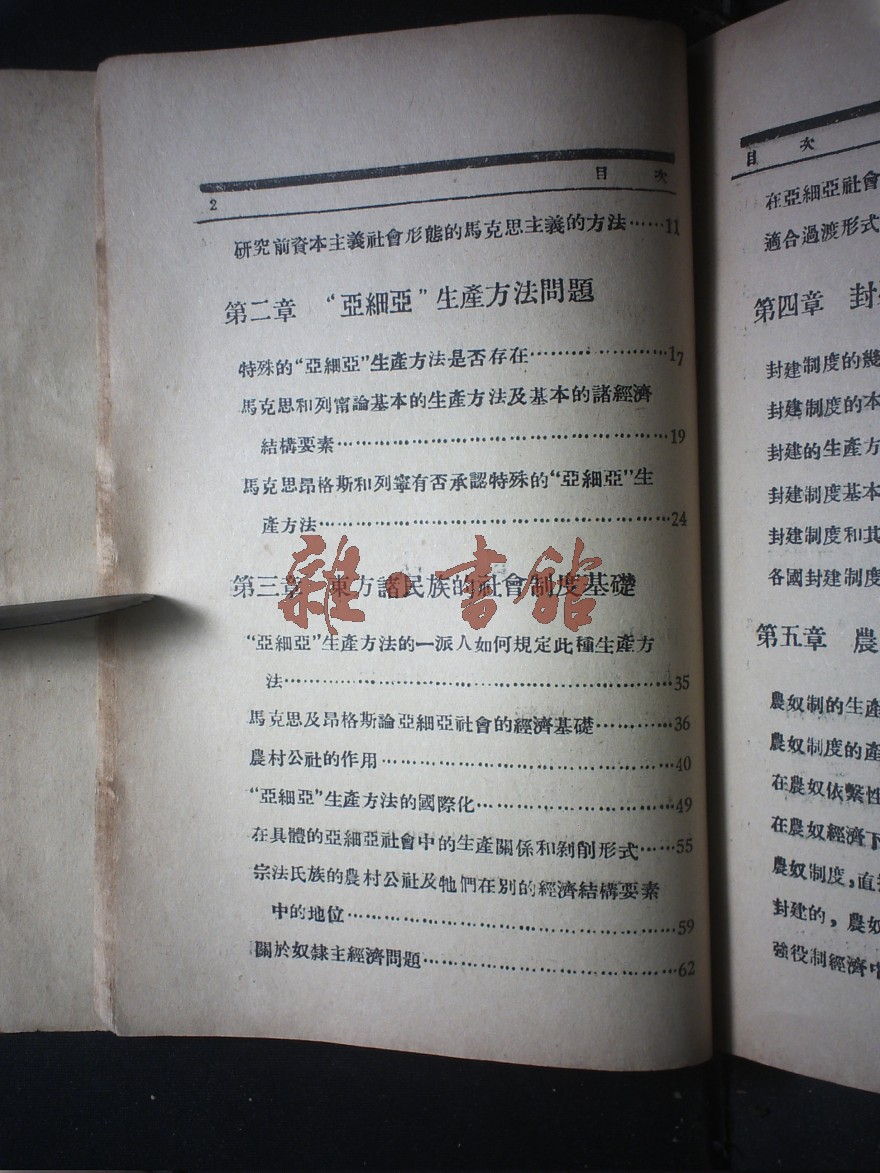 目 次
2
研究前資本主義社會形態的馬克思主義的方法……11
第二章 “亞細亞”生產方法問題
特殊的“亞細亞”生產方法是否存在…………………17
馬克思和列甯論基本的生產方法及基本的諸經濟
結構要素…………………………………………19
馬克思昂格斯和列寧有否承認特殊的“亞細亞”生
產方法……………………………………………24
第三章 東方諸民族的社會制度基礎
“亞細亞”生產方法的一派人如何規定此種生產方
法…………………………………………………35
馬克思及昂格斯論亞細亞社會的經濟基礎…………36
農村公社的作用……………………………………40
“亞細亞”生產方法的國際化………………………49
在具體的亞細亞社會中的生產關係和剝削形式……55
宗法民族的農村公社及牠們在別的經濟結構要素
中的地位…………………………………………59
關於奴隸主經濟問題………………………………62
雜·書館
目 次
在亞細亞社會
適合過渡形式
第四章 封
封建制度的幾
封建制度的本
封建的生產方
封建制度基本
封建制度和其
各國封建制度
第五章 農
農奴制的生產
農奴制度的產
在農奴依繫性
在農奴經濟下
農奴制度，直
封建的，農奴
強役制經濟中